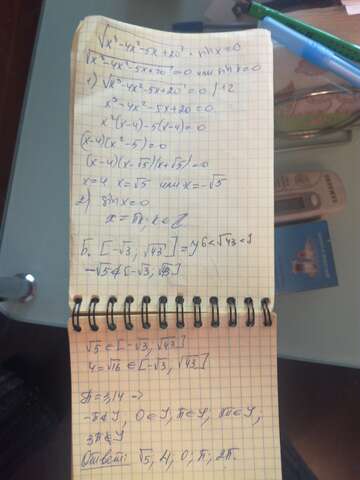 √x³-4x²-5x+20 · sin x=0
√x³-4x²-5x+20=0 или sin x=0
1) √x³-4x²-5x+20=0 |^2
x³-4x²-5x+20=0
x²(x-4)-5(x-4)=0
(x-4)(x²-5)=0
(x-4)(x-√5)(x+√5)=0
x=4 x=√5 или x=-√5
2) sin x=0
x=πk, k∈Z
Б. [-√3, √43] = 6<√43<7
-√5∉[-√3, √43]
√5∈[-√3, √43]
4=√16∈[-√3, √43]
π≈3,14 ⇒
-π∉I, 0∈I, π∈I, 2π∈I,
3π∉I
Ответ: √5, 4, 0, π, 2π.